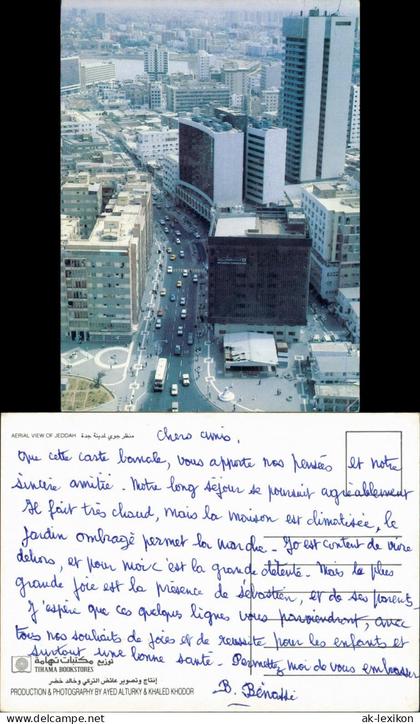 AERIAL VIEW OF JEDDAH منظر جوي لمدينة جدة
Chers amis,
Que cette carte banale, vous apporte nos pensées et notre
sincère amitié. Notre long séjour se poursuit agréablement
Il fait très chaud, mais la maison est climatisée, le
jardin ombragé permet la marche. Jo est content de vivre
dehors, et pour moi c'est la grande détente. Mais la plus
grande joie est la présence de sébastien, et de ses parents
J'espère que ces quelques lignes vous parviendront, avec
tous nos souhaits de joies et de réussite pour les enfants et
surtout une bonne santé. Permettez moi de vous embrasser
B. Bénassi
توزيع مكتبات تهامة
TIHAMA BOOKSTORES
إنتاج وتصوير عائض التركي وخالد خضر
PRODUCTION & PHOTOGRAPHY BY AYED ALTURKY & KHALED KHODOR
ak-lexikon